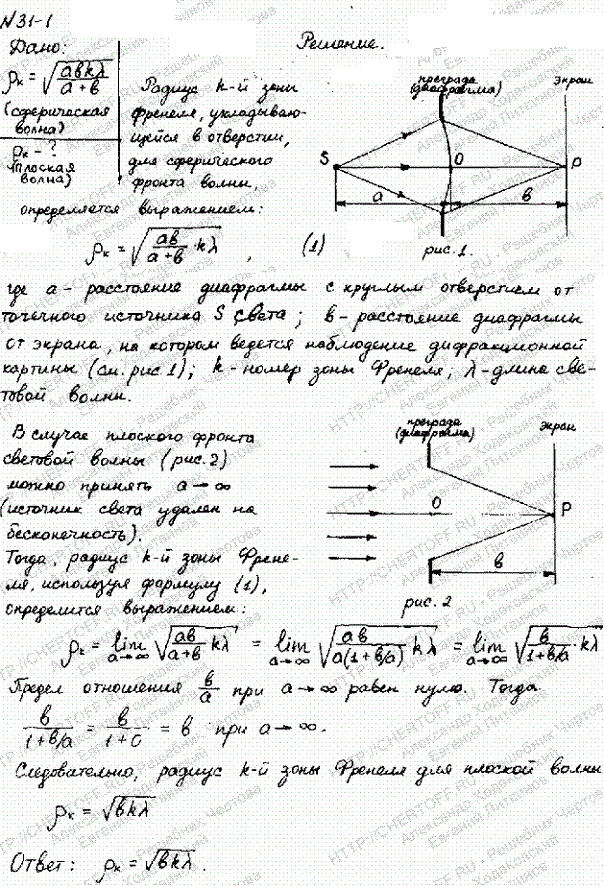 №31-1
Дано:
Решение.
ρₖ = √(abkλ/(a+b))
(сферическая
волна)
ρₖ - ?
(плоская
волна)
Радиус k-й зоны
Френеля, укладываю-
щейся в отверстии,
для сферического
фронта волны,
определяется выражением:
ρₖ = √(ab/(a+b) · kλ) , (1)
преграда
(диафрагма)
экран
S
O
P
a
b
рис. 1.
где a - расстояние диафрагмы с круглым отверстием от
точечного источника S света; b - расстояние диафрагмы
от экрана, на котором ведется наблюдение дифракционной
картины (см. рис 1); k - номер зоны Френеля; λ - длина све-
товой волны.
В случае плоского фронта
световой волны (рис. 2)
можно принять a → ∞
(источник света удален на
бесконечность).
Тогда, радиус k-й зоны Френе-
ля, используя формулу (1),
определится выражением:
преграда
(диафрагма)
экран
O
P
b
рис. 2
ρₖ = lim a→∞ √(ab/(a+b) kλ) = lim a→∞ √(ab/(a(1+b/a)) kλ) = lim a→∞ √(b/(1+b/a) · kλ)
Предел отношения b/a при a → ∞ равен нулю. Тогда
b/(1+b/a) = b/(1+0) = b при a → ∞.
Следовательно, радиус k-й зоны Френеля для плоской волны
ρₖ = √(bkλ)
Ответ: ρₖ = √(bkλ).
HTTP://CHERTOFF.RU - Решебник Чертова
Александр Ходаковский
Евгений Питилимов